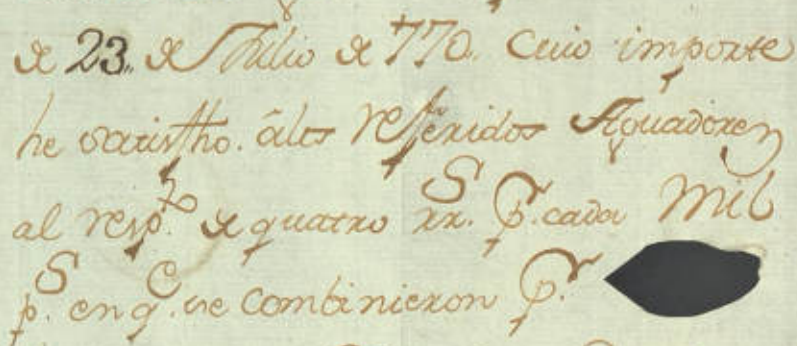 de 23,, de Julio de 770,, Cuio importe
he satisfho. âlos Referidos Aguadores
al respto. de quatro rrs. pr. cada Mil
ps. en qe. se Combinieron pr.